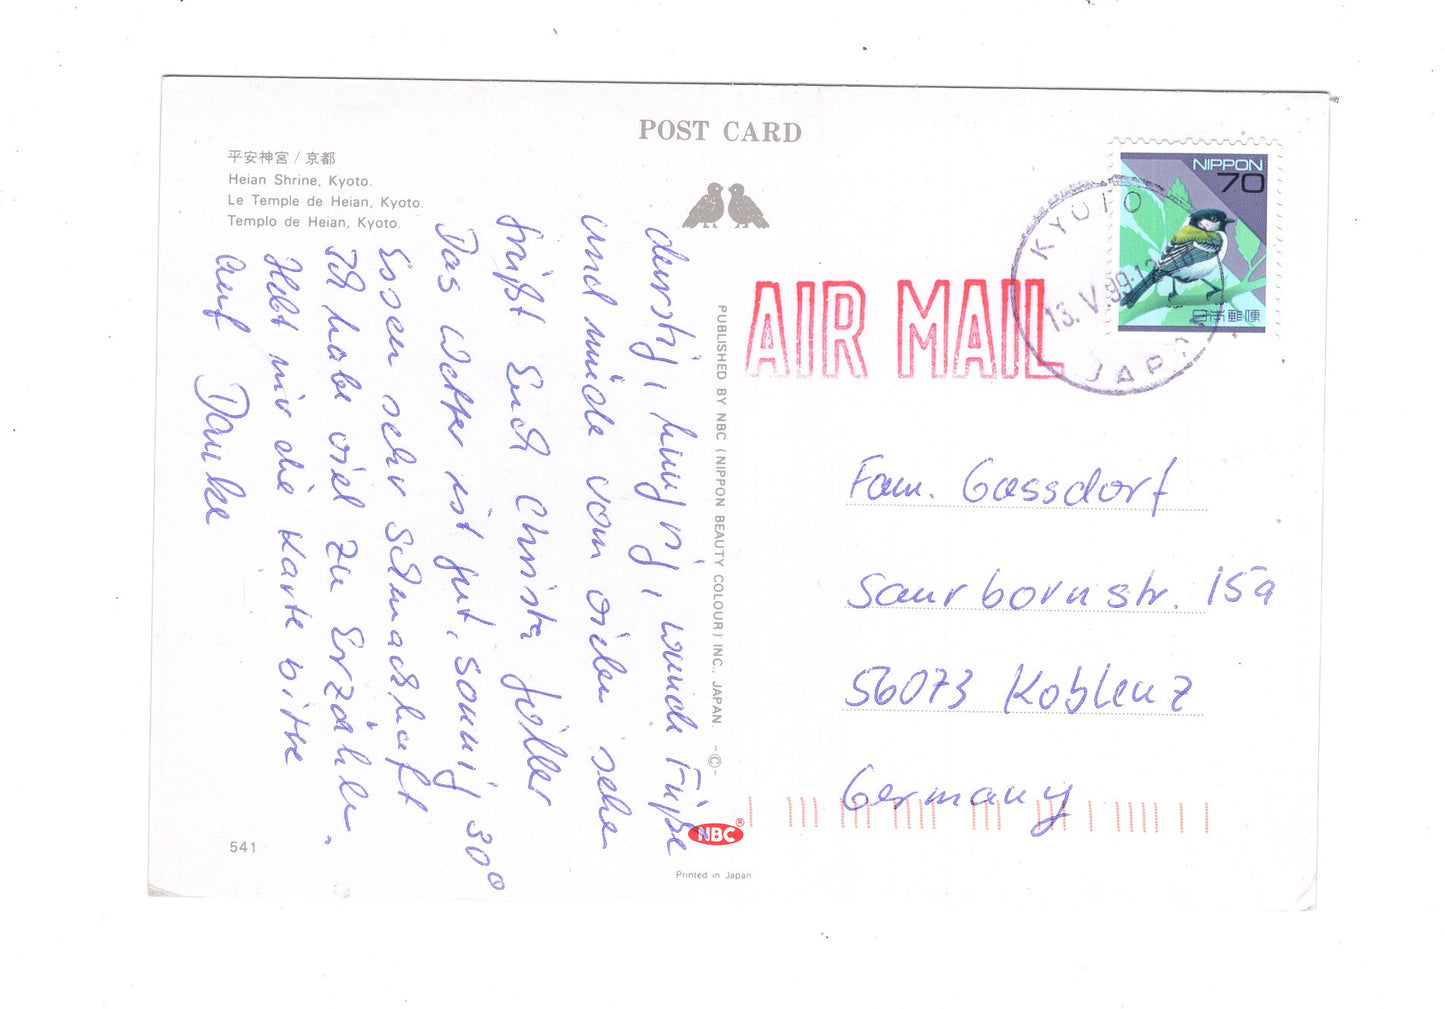 POST CARD
平安神宮 / 京都
Heian Shrine, Kyoto.
Le Temple de Heian, Kyoto.
Templo de Heian, Kyoto.
durstig, hungrig, wunde Füße
und müde vom vielen sehen
grüßt Euch Christa
Das Wetter ist gut, sonnig 30°
Essen sehr schmackhaft
Ich habe viel zu Erzählen.
Hebt mir die Karte bitte
auf Danke
541
PUBLISHED BY NBC (NIPPON BEAUTY COLOUR) INC., JAPAN. -©-
NBC®
Printed in Japan
AIR MAIL
NIPPON
70
日本郵便
KYOTO
13.V.99.12
JAPAN
Fam. Gassdorf
Saurbornstr. 15a
56073 Koblenz
Germany